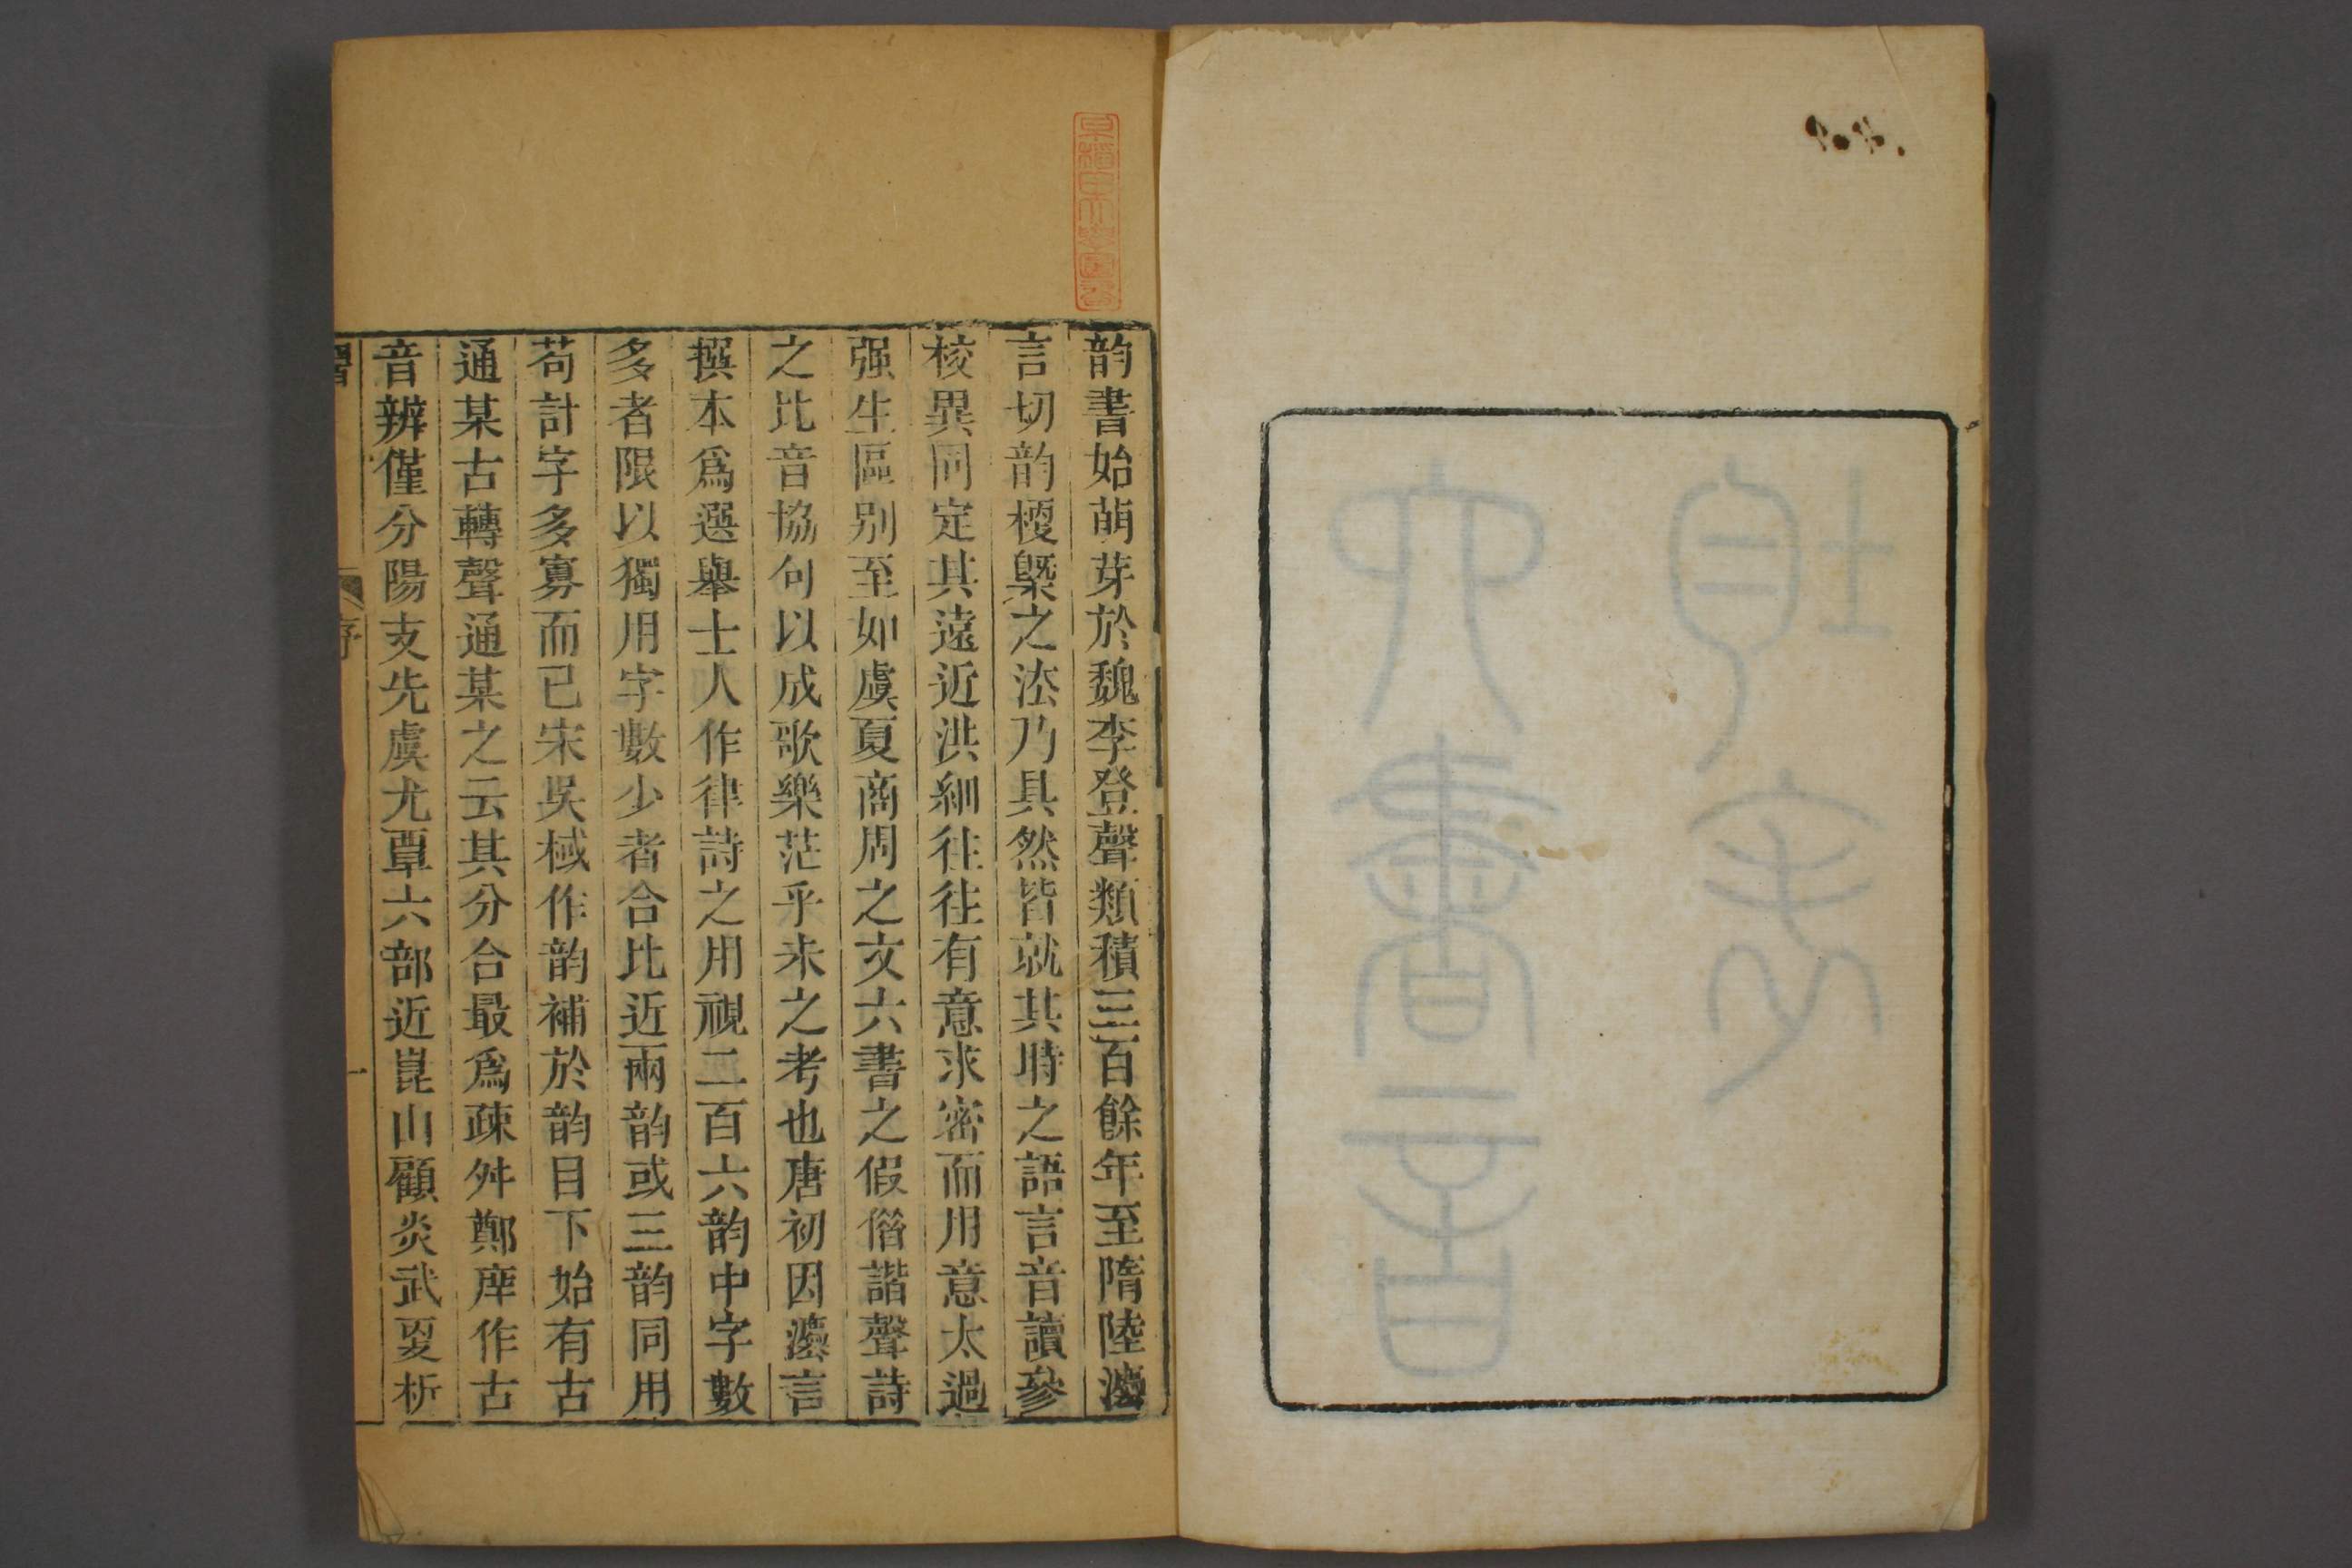 六書音
均表
早稻田大學圖書
韵書始萌芽於魏李登聲類積三百餘年至隋陸灋
言切韵梗槩之法乃具然皆就其時之語言音讀參
校異同定其遠近洪細往往有意求密而用意太過
强生區别至如虞夏商周之文六書之假借諧聲詩
之比音協句以成歌樂茫乎未之考也唐初因灋言
撰本爲選舉士人作律詩之用視二百六韵中字數
多者限以獨用字數少者合比近兩韵或三韵同用
苟計字多寡而已宋吳棫作韵補於韵目下始有古
通某古轉聲通某之云其分合最爲疎舛鄭庠作古
音辨僅分陽支先虞尤覃六部近崑山顧炎武㪅析
序
一